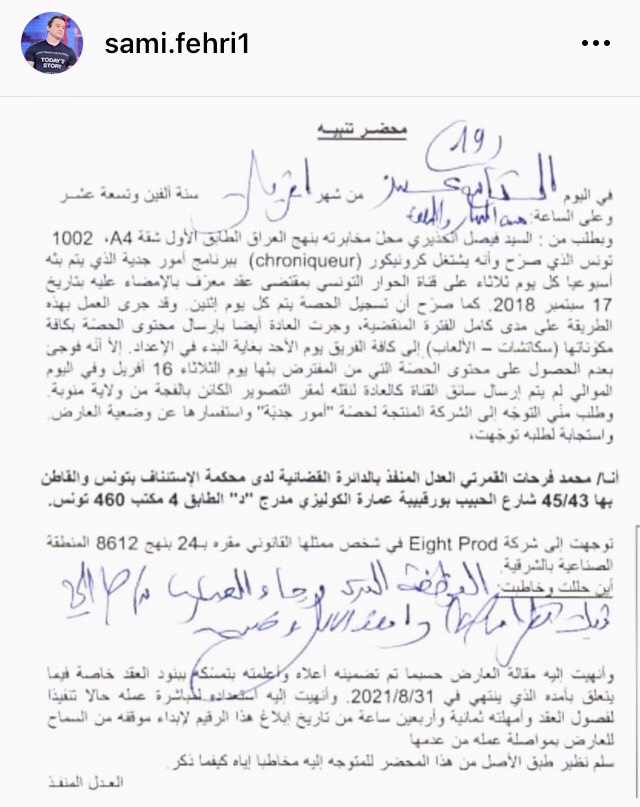 sami.fehri1
محضر تنبيه
(19)
في اليوم التاسع عشر من شهر افريل سنة ألفين وتسعة عشر
وعلى الساعة:
وبطلب من : السيد فيصل الحذيري محلّ مخابرته بنهج العراق الطابق الأول شقة A4، 1002
تونس الذي صرّح وأنه يشتغل كرونيكور (chroniqueur) ببرنامج أمور جدية الذي يتم بثه
أسبوعيا كل يوم ثلاثاء على قناة الحوار التونسي بمقتضى عقد معرّف بالإمضاء عليه بتاريخ
17 سبتمبر 2018. كما صرّح أن تسجيل الحصة يتم كل يوم إثنين. وقد جرى العمل بهذه
الطريقة على مدى كامل الفترة المنقضية، وجرت العادة أيضا بإرسال محتوى الحصّة بكافة
مكوّناتها (سكاتشات – الألعاب) إلى كافة الفريق يوم الأحد بغاية البدء في الإعداد. إلاّ أنّه فوجئ
بعدم الحصول على محتوى الحصّة التي من المفترض بثها يوم الثلاثاء 16 أفريل وفي اليوم
الموالي لم يتم إرسال سائق القناة كالعادة لنقله لمقر التصوير الكائن بالفجة من ولاية منوبة.
وطلب منّي التوجّه إلى الشركة المنتجة لحصّة "أمور جديّة" واستفسارها عن وضعية العارض.
واستجابة لطلبه توجّهت،
أنا/ محمد فرحات القمرتي العدل المنفذ بالدائرة القضائية لدى محكمة الإستئناف بتونس والقاطن
بها 45/43 شارع الحبيب بورقيبية عمارة الكوليزي مدرج "د" الطابق 4 مكتب 460 تونس.
توجهت إلى شركة Eight Prod في شخص ممثلها القانوني مقره بـ24 نهج 8612 المنطقة
الصناعية بالشرقية.
أين حللت وخاطبت:
وأنهيت إليه مقالة العارض حسبما تم تضمينه أعلاه وأعلمته بتمسّكه ببنود العقد خاصة فيما
يتعلق بأمده الذي ينتهي في 2021/8/31. وأنهيت إليه استعداده لمباشرة عمله حالا تنفيذا
لفصول العقد وأمهلته ثمانية وأربعين ساعة من تاريخ إبلاغ هذا الرقيم لإبداء موقفه من السماح
للعارض بمواصلة عمله من عدمها
سلم نظير طبق الأصل من هذا المحضر للمتوجه إليه مخاطبا إياه كيفما ذكر.
العدل المنفذ